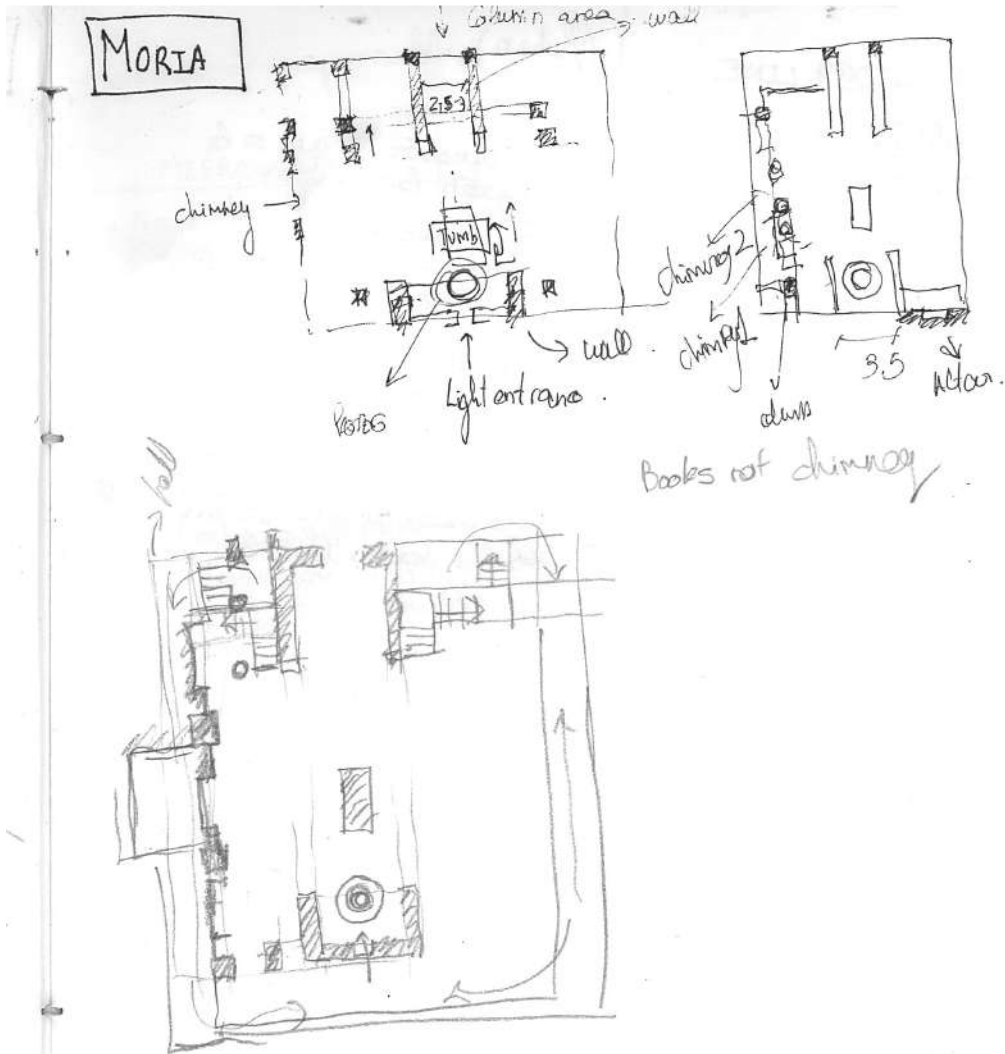 MORIA
Column area
wall
2,5-3
chimney
Tumb
wall.
Light entrance.
chimney 2
chimney 1
3.5
Books not chimney